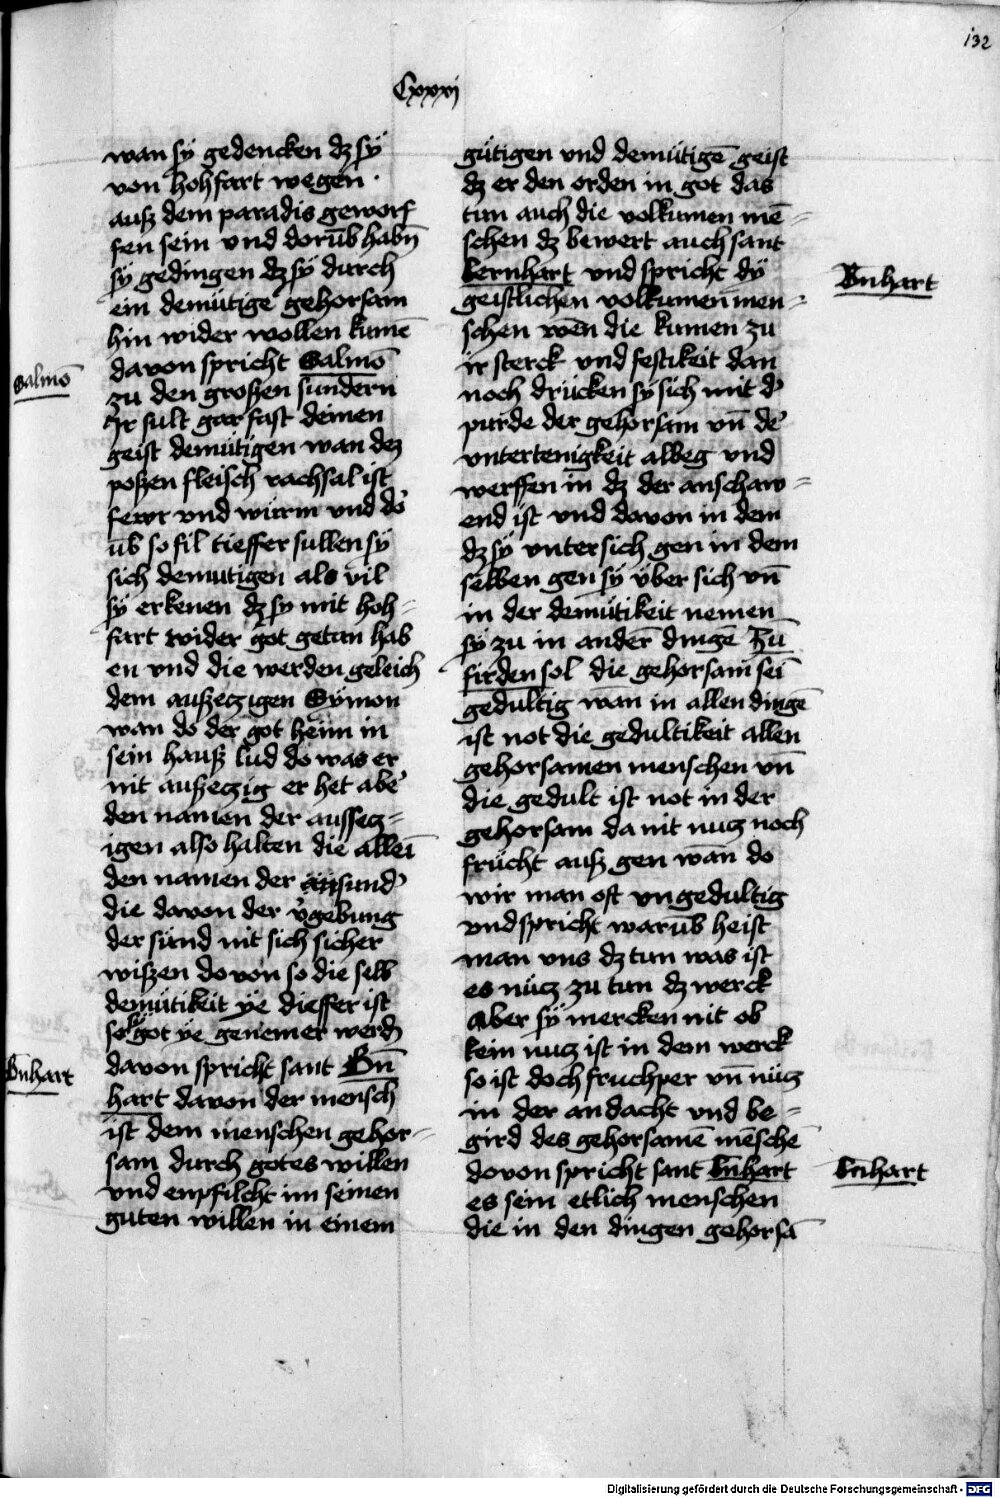 132
Cxxxi
wan sÿ gedencken dz sÿ
von hohfart wegen ·
ausz dem paradis geworf
fen sein vnd dorūb habn̄
sÿ gedingen dz sÿ durch
ein demütige gehorsam
hin wider wollen kumē
davon spricht Salmō
Salmō
zu den groszen sundern
Ir sult gar fast deinen
geist demütigen wan dez
poszen fleisch rachsal ist
fewr vnd würm vnd do
ūb so fil tieffer sullen sÿ
sich demutigen als vil
sÿ erkenen dz sy mit hoh-
fart wider got getan hab
en vnd die werden geleich
dem auszeczigen Sÿmon
wan do der got heim in
sein hausz lud do was er
nit auszeczig er het abe
den namen der aussecz-
igen also halten die alleī
den namen der sund
die davon der v̓gebung
der sünd nit sich sicher
wiszen dovon so die selb
demütikeit ÿe dieffer ist
so sÿ got ÿe genemer werdn̄
davon spricht sant Bn̄
Bn̄hart
hart davon der mensch
ist dem menschen gehor-
sam durch gotes willen
vnd enpfilcht im seinen
guten willen in einem
gütigen vnd demütigē geist
dz er den orden in got das
tun auch die volkumen mē-
schen dz bewert auch sant
bernhart vnd spricht dÿ
Bn̄hart
geistlichen volkumen men-
schen wen die kumen zu
ir sterck vnd festikeit dan
noch drücken sÿ sich mit d̓
pürde der gehorsam vn̄ de
vntertenigkeit albeg vnd
werffen in dz der anschaw-
end ist vnd davon in dem
dz sÿ vntersich gen in dem
selben gen sÿ über sich vn̄
in der demütikeit nemen
sÿ zu in ander dingē Zū
firden sol die gehorsam sei
gedultig wan in allen dingē
ist not die gedultikeit allen
gehorsamen menschen vn̄
die gedult ist not in der
gehorsam da nit nucz noch
frücht ausz gen wan do
wir man oft vngedultig
vnd spricht warūb heist
man vns dz tun was ist
es nücz zu tun dz werck
aber sÿ mercken nit ob
kein nucz ist in dem werck
so ist doch fruchper vn̄ nücz
in der andacht vnd be-
gird des gehorsamē mēschē
dovon spricht sant bn̄hart
bn̄hart
es sein etlich menschen
die in den dingen gehorsā
Digitalisierung gefördert durch die Deutsche Forschungsgemeinschaft - DFG